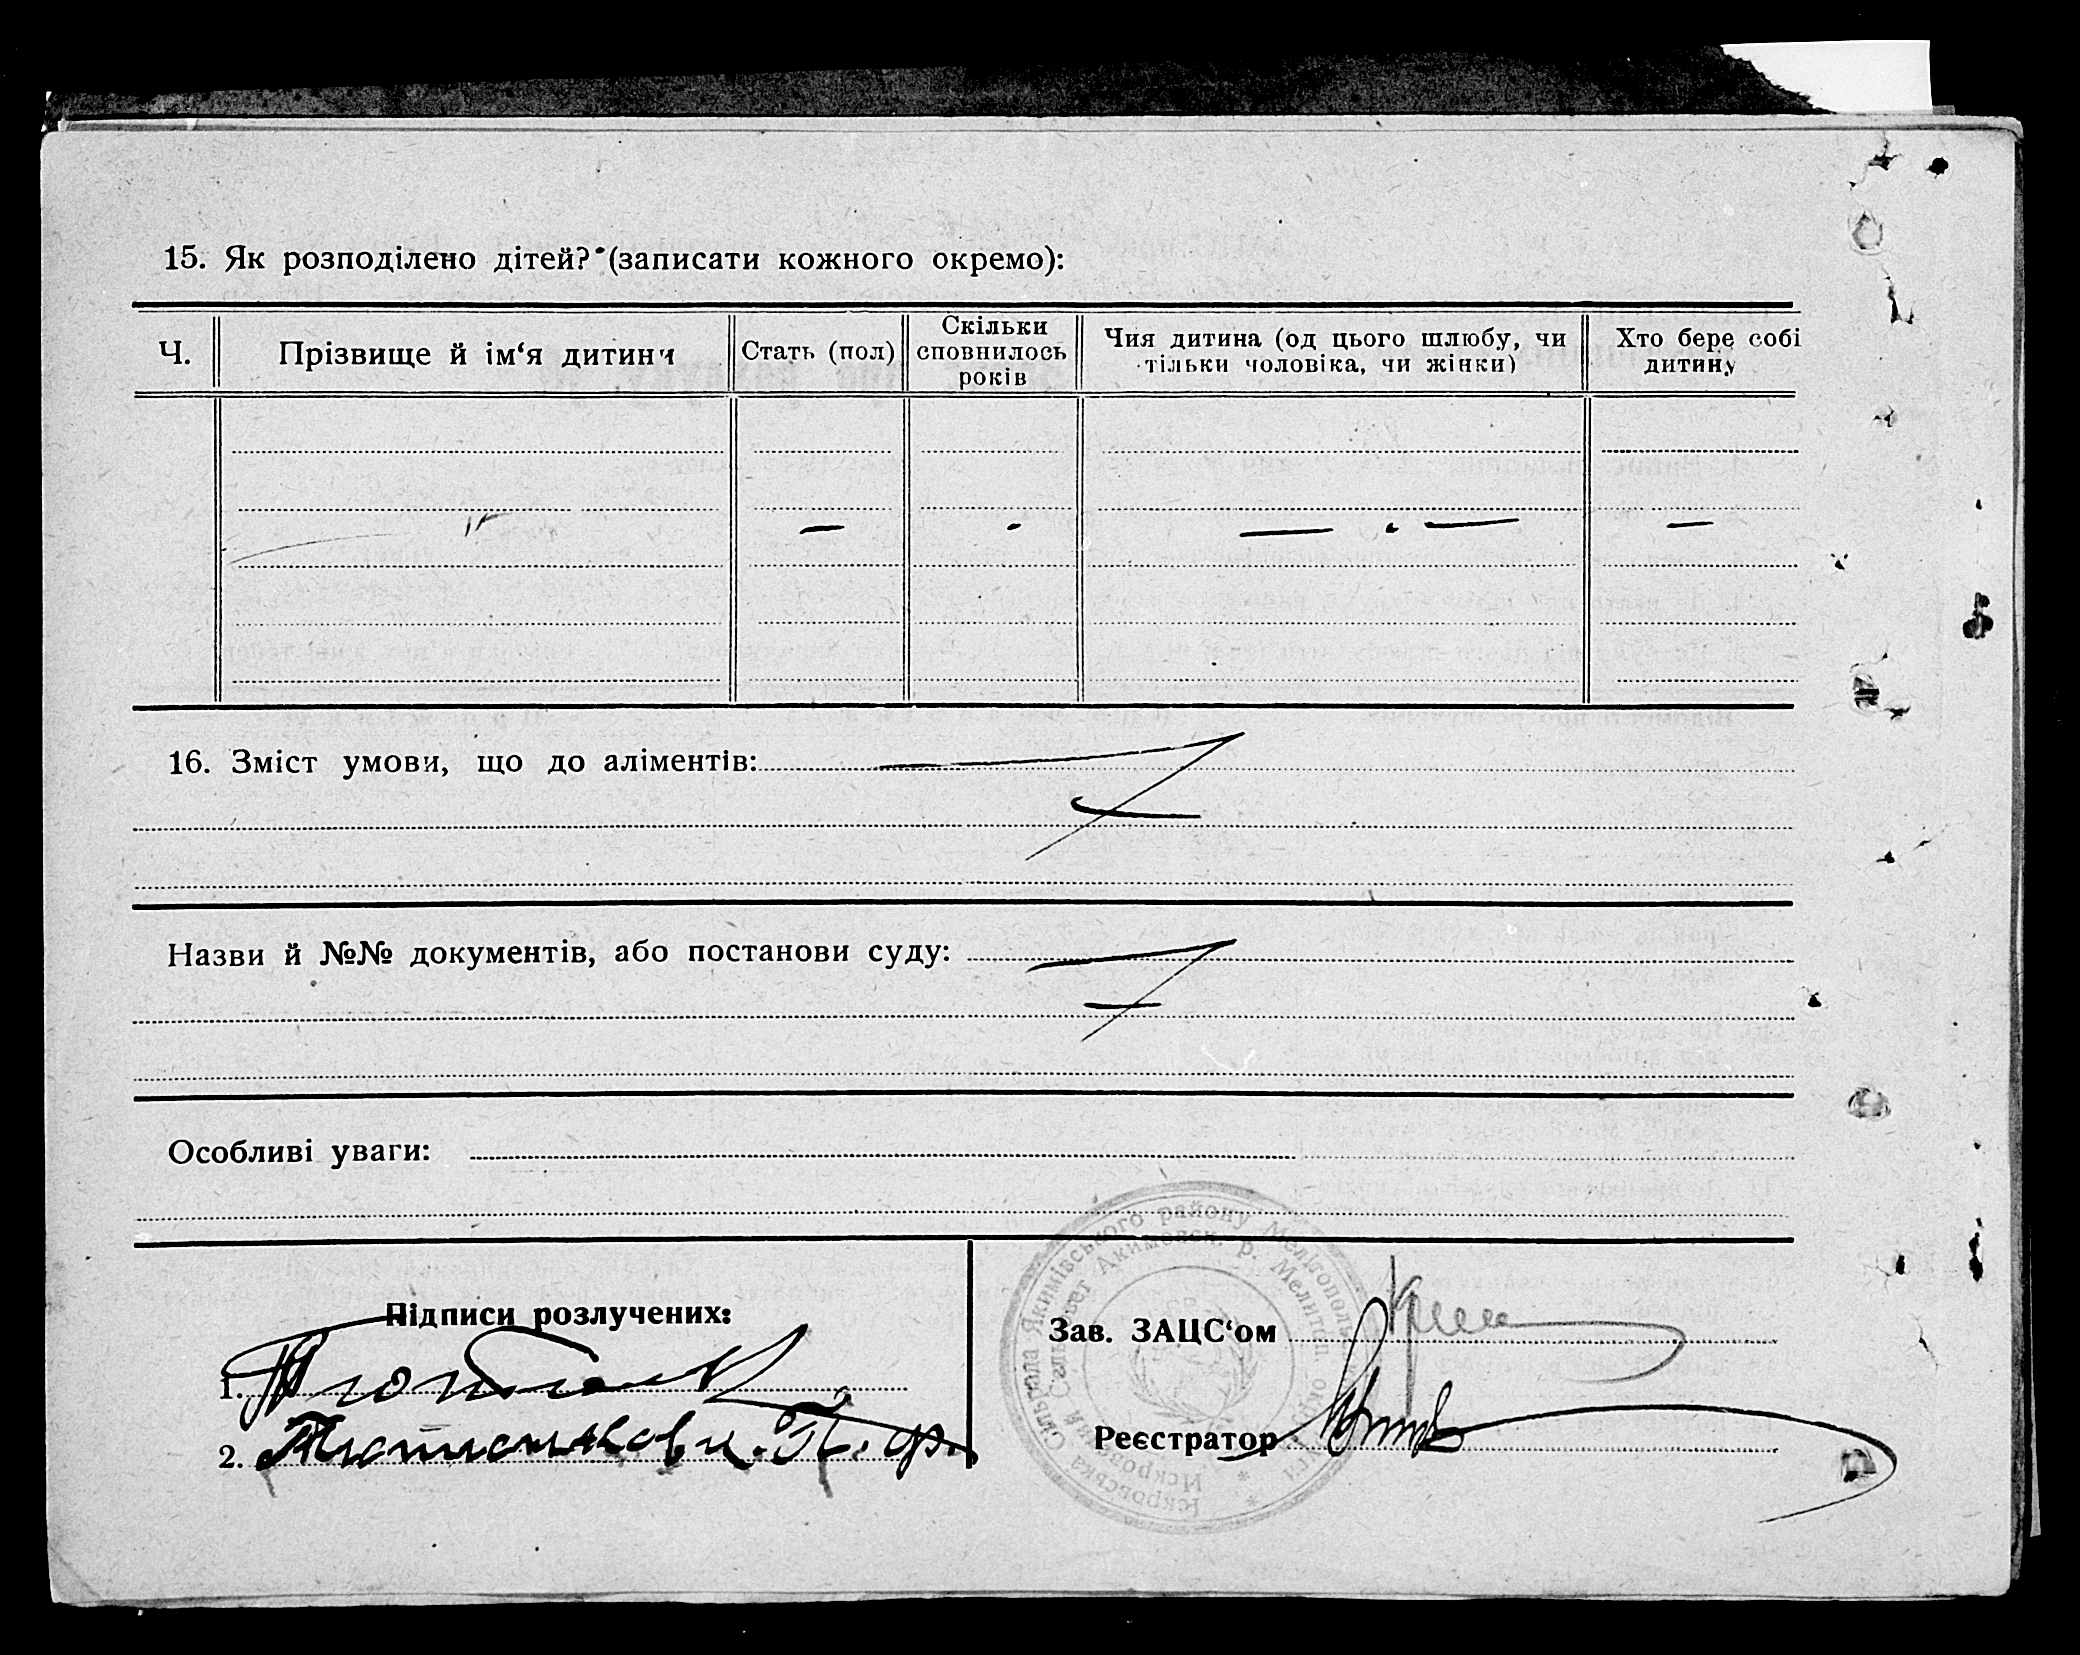 15. Як розподілено дітей? (записати кожного окремо):
Ч.
Прізвище й ім‘я дитини
Стать (пол)
Скільки
сповнилось
років
Чия дитина (од цього шлюбу, чи
тільки чоловіка, чи жінки)
Хто бере собі
дитину
— - — . — —
16. Зміст умови, що до аліментів:
Назви й №№ документів, або постанови суду:
Особливі уваги:
Підписи розлучених:
1.
2.
Зав. ЗАЦС‘ом
Реєстратор
Іскровська Сільрада Якимівського району Мелітопольс
Искровский Сельсовет Акимовск. р. Мелитоп. округа